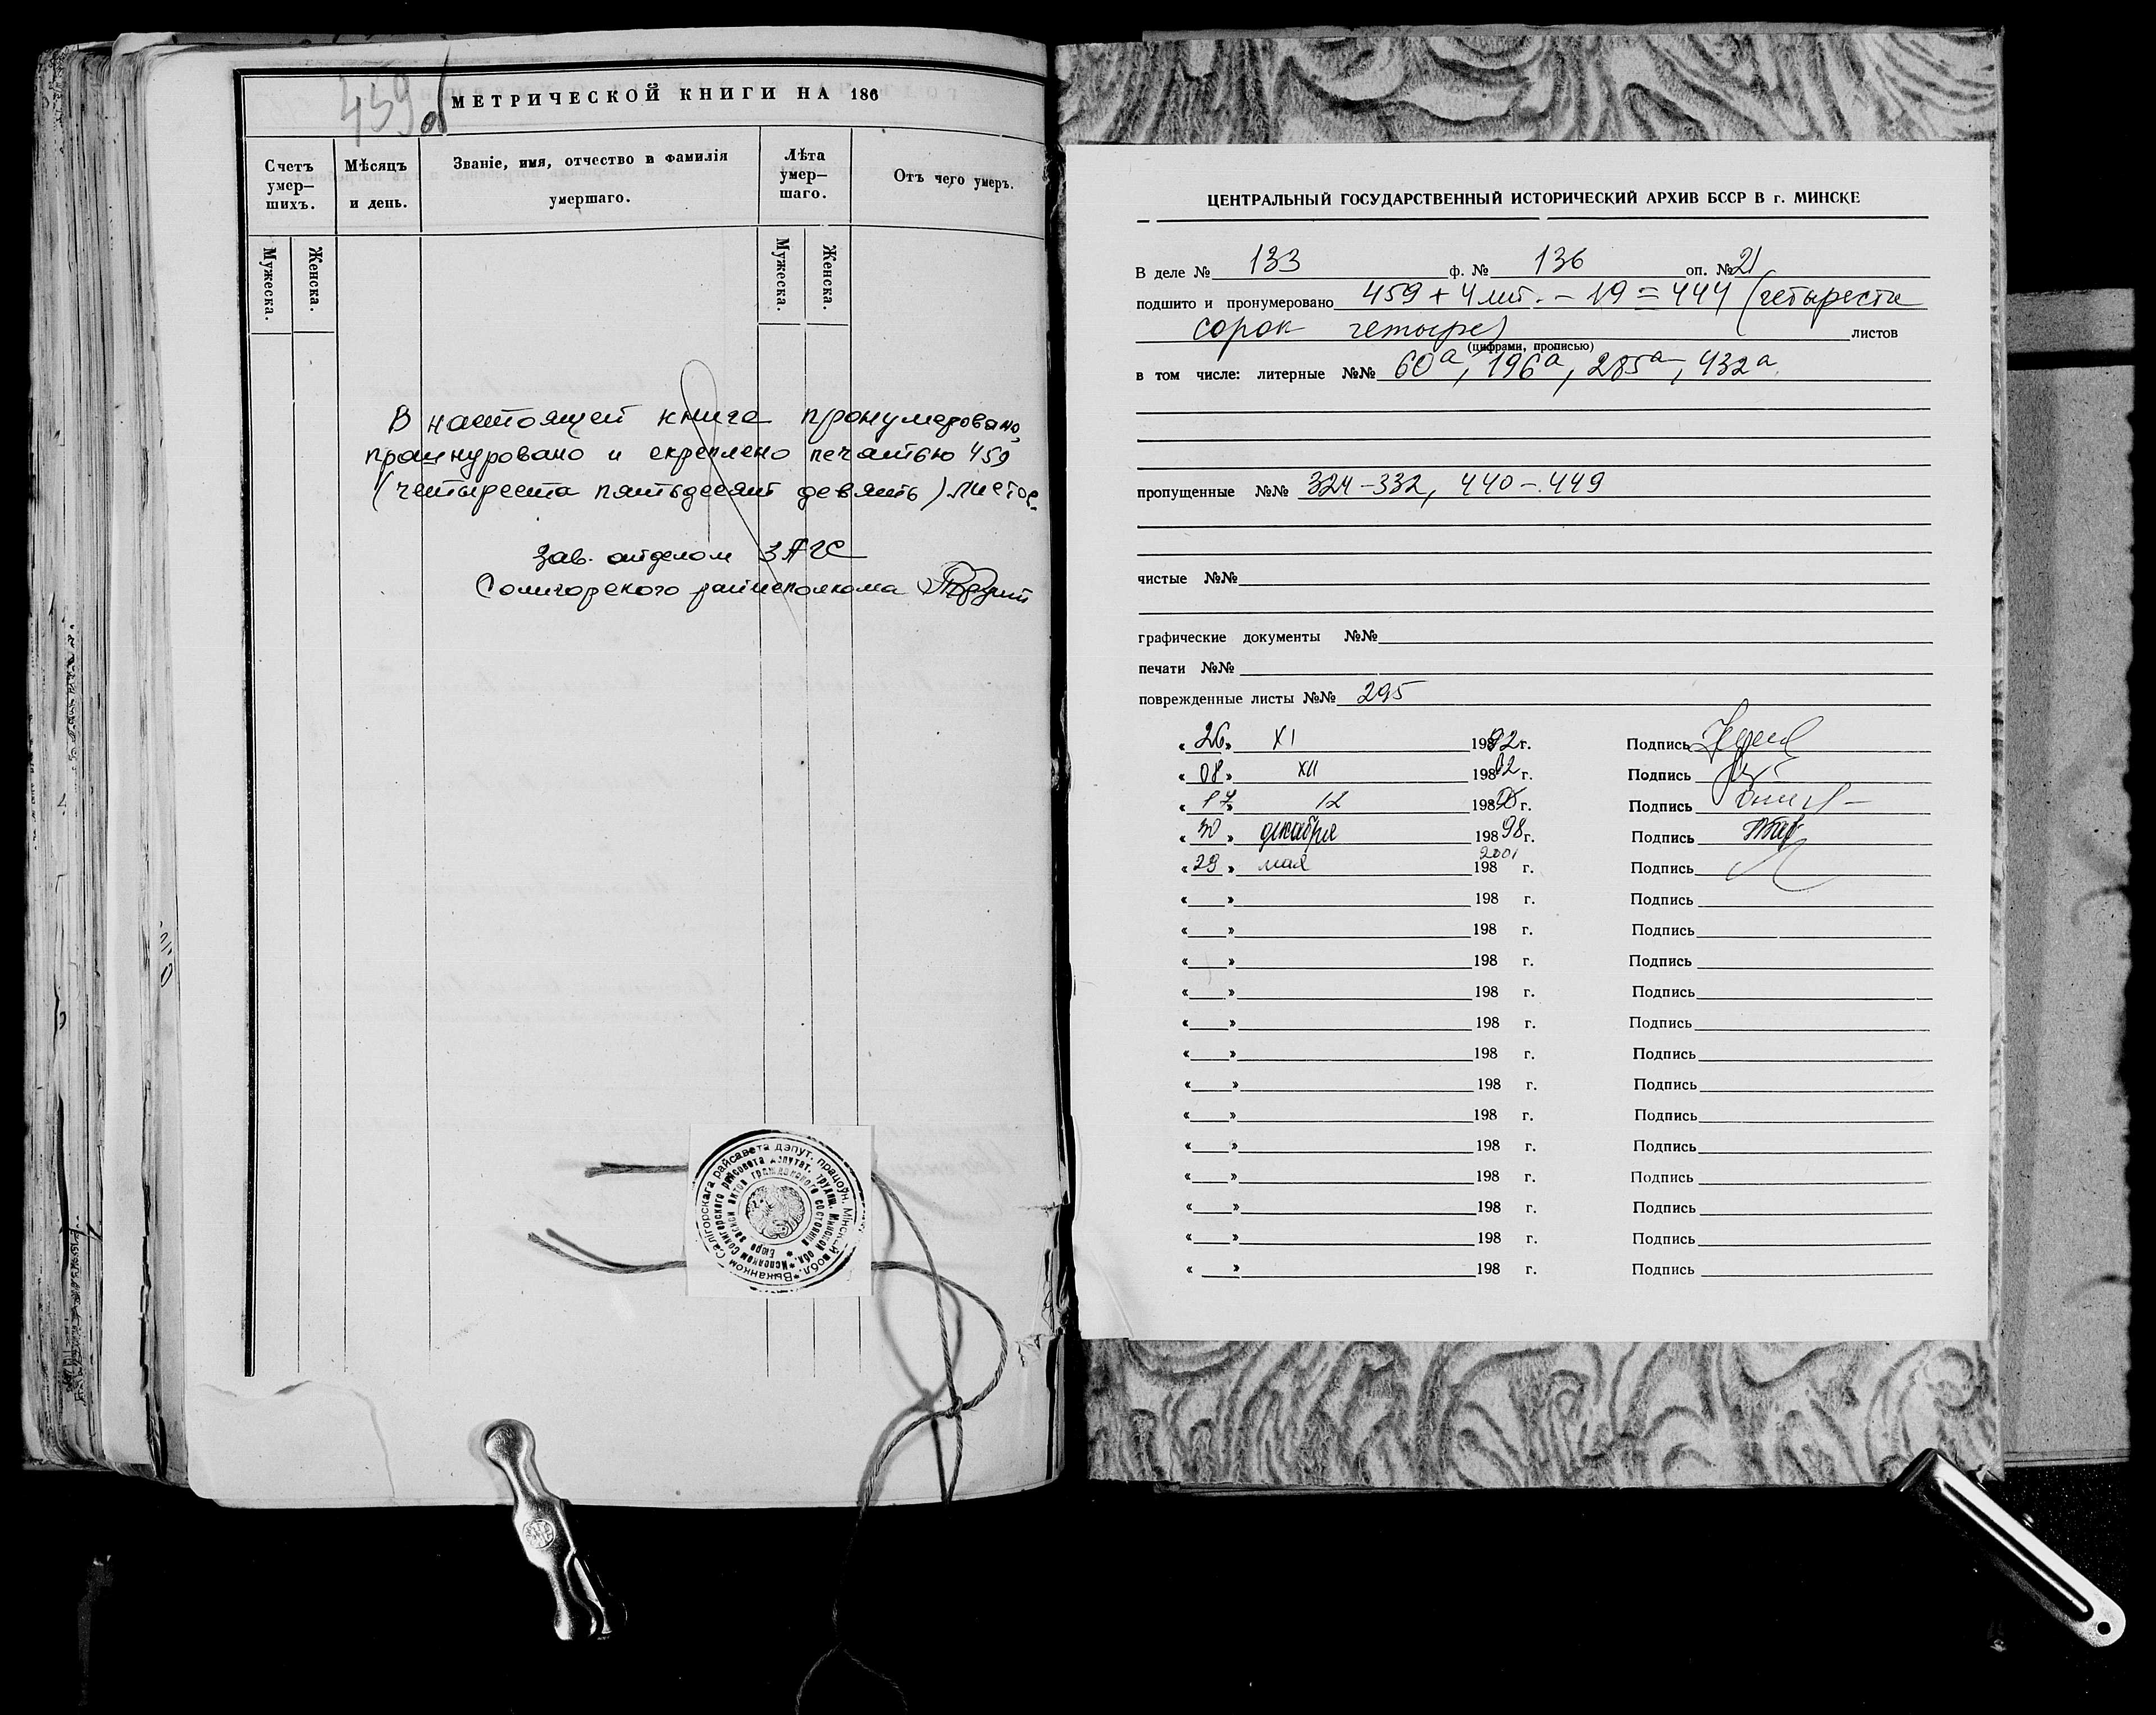 459 об
МЕТРИЧЕСКОЙ КНИГИ НА 186
Счетъ умер— шихъ.
Мѣсяцъ и день.
Званіе, имя, отчество и фамилія умершаго.
Лѣта умер— шаго.
Отъ чего умеръ.
Мужеска.
Женска.
Мужеска.
Женска.
В настоящей книге пронумеровано,
прошнуровано и скреплено печатью 459
(четыреста пятьдесят девять) листов.
Зав. отделом ЗАГС
Солигорского райисполкома
Салігорскага райсавета дэпут. працоўн. Мінскай вобл. * Выканком
Исполком Солигорского райсовета депутат. трудящ. Минской обл. *
Бюро записи актов гражданского состояния *
ЦЕНТРАЛЬНЫЙ ГОСУДАРСТВЕННЫЙ ИСТОРИЧЕСКИЙ АРХИВ БССР В г. МИНСКЕ
В деле № 133 ф. № 136 оп. № 21
подшито и пронумеровано 459 + 4 лит. – 19 = 444 (четыреста
сорок четыре) листов
(цифрами, прописью)
в том числе: литерные №№ 60а, 196а, 285а, 432а.
пропущенные №№ 324–332, 440–449
чистые №№
графические документы №№
печати №№
поврежденные листы №№ 295
« 26 » XI 198 92 г. Подпись
« 08 » XII 198 92 г. Подпись
« 17 » 12 198 г. Подпись
« 30 » декабря 198 98 г. Подпись
« 29 » мая 198 2001 г. Подпись
« » 198 г. Подпись
« » 198 г. Подпись
« » 198 г. Подпись
« » 198 г. Подпись
« » 198 г. Подпись
« » 198 г. Подпись
« » 198 г. Подпись
« » 198 г. Подпись
« » 198 г. Подпись
« » 198 г. Подпись
« » 198 г. Подпись
« » 198 г. Подпись
« » 198 г. Подпись